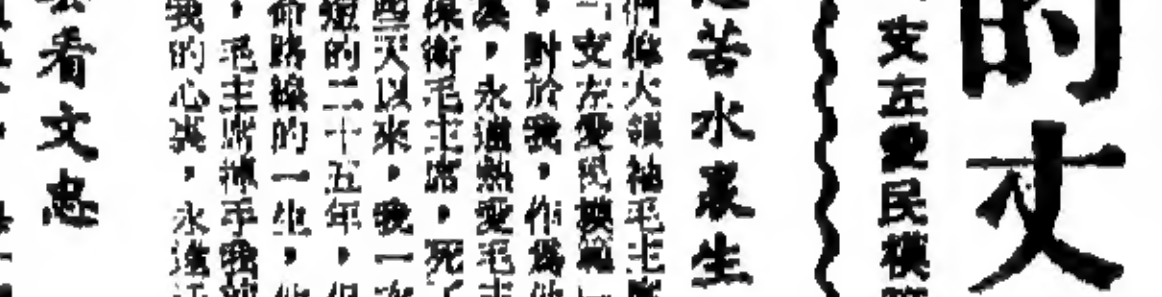 的丈
支左愛民模
苦水裏生
們偉大領袖毛主席
支左愛民模範
對於我，作爲他
永遠熱愛毛主
保衛毛主席，死了
些天以來，我一次
的二十五年，但
命路線的一生，他
毛主席揮手我前
我的心裏，永遠活
看文忠